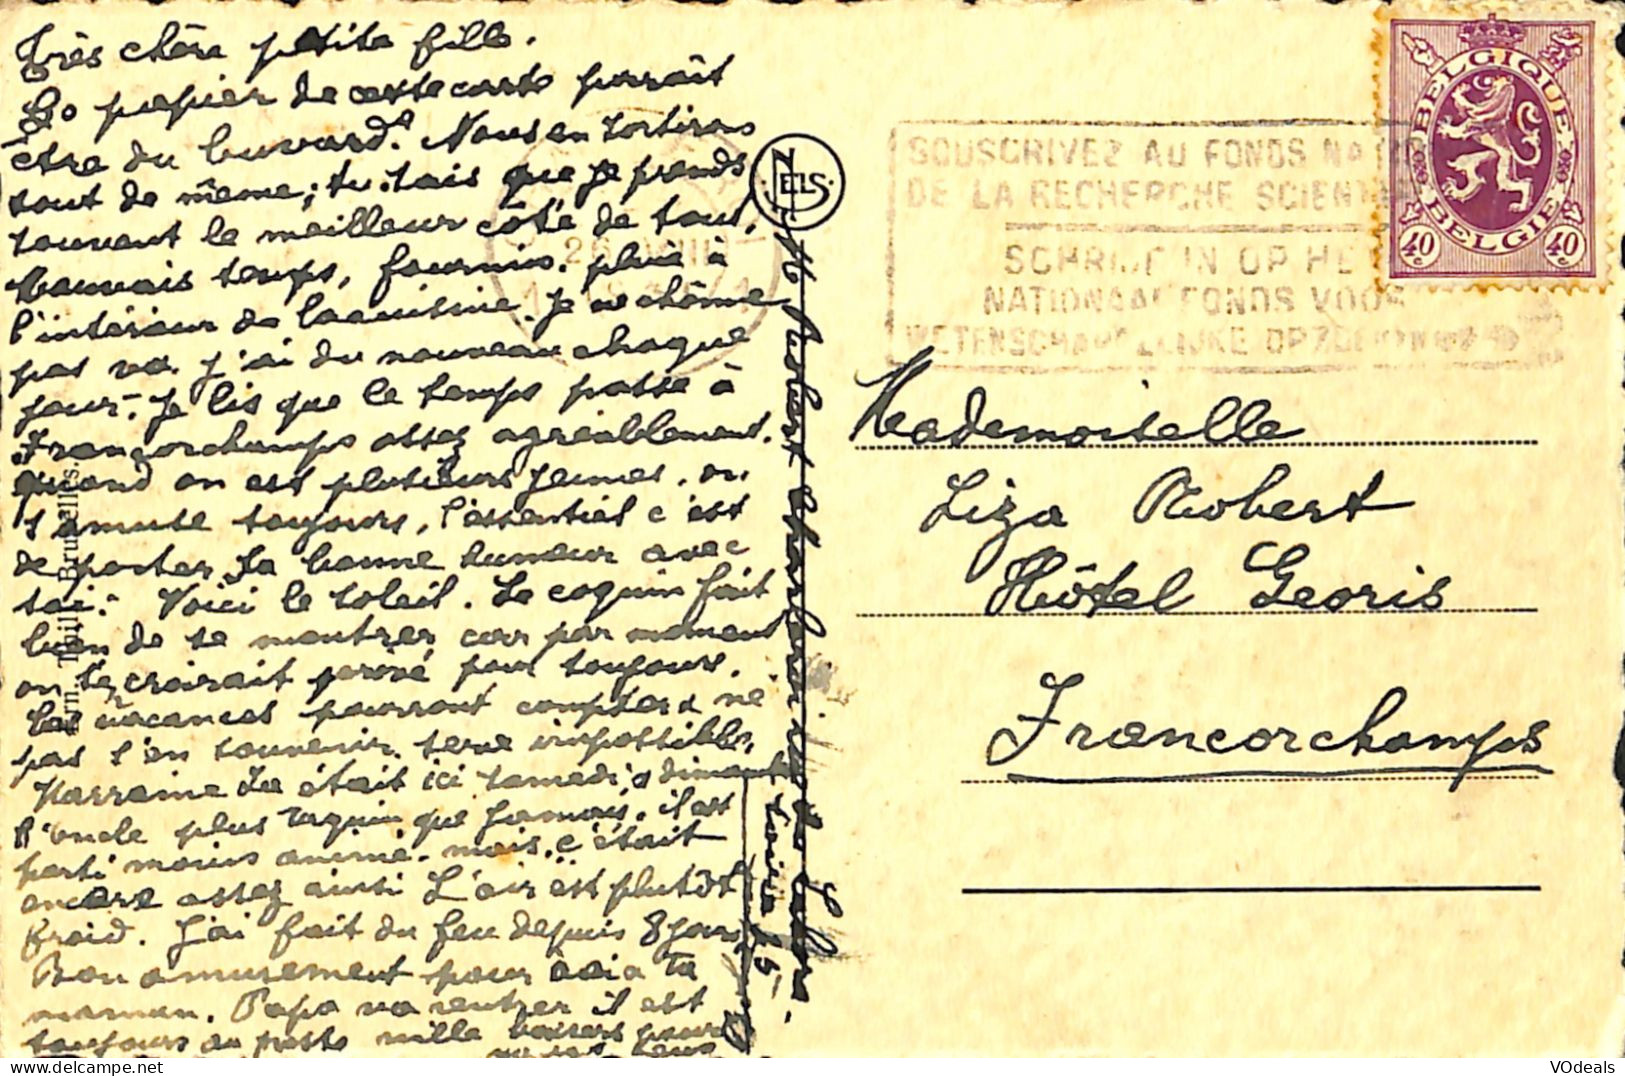 Très chère petite fille.
Le papier de cette carte paraît
être du buvard. Nous en sortirons
tout de même; tu sais que je prends
souvent le meilleur côté de tout.
Mauvais temps, fourmis, pluie à
l'intérieur de la cuisine. Je ne chôme
pas va. J'ai du nouveau chaque
jour. Je lis que le temps passe à
Francorchamps assez agréablement.
quand on est plusieurs jeunes, on
s'amuse toujours, l'essentiel c'est
de porter sa bonne humeur avec
soi. Voici le soleil. Le coquin fait
bien de se montrer car par moment
on se croirait privé pour toujours.
Les vacances pourront compter, ne
pas s'en souvenir sera impossible.
Marraine Ju était ici samedi, dimanche
l'oncle plus taquin que jamais, il est
parti moins animé, mais c'était
encore assez ainsi L'air est plutôt
froid. J'ai fait du feu depuis 8 jours
Bon amusement pour toi a Ta
maman. Papa va rentrer il est
toujours au poste mille baisers pour
vous tous
Ern. Thill, Bruxelles.
NELS
M Robert
BELGIQUE
BELGIE
40 c 40 c
SOUSCRIVEZ AU FONDS NATIO
DE LA RECHERCHE SCIENT
SCHRIJF IN OP HE
NATIONAAL FONDS VOOR
WETENSCHAPPELIJKE OPZOEKINGEN
26 VIII
Mademoiselle
Liza Robert
Hôtel Georis
Francorchamps
VOdeals